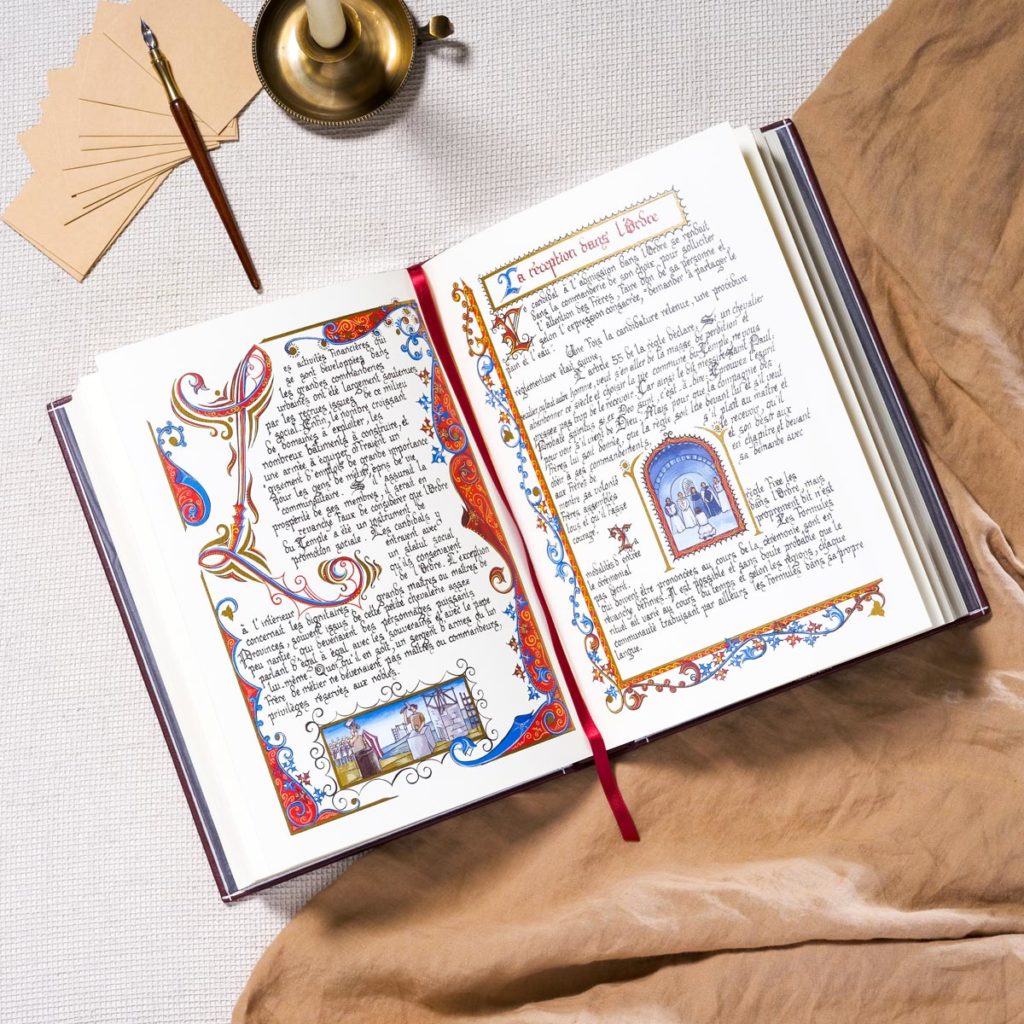 Les activités financières qui
se sont développées dans
les grandes commanderies
urbaines ont été largement soutenues
par les recrues issues de ce milieu
social. Enfin, le nombre croissant
de domaines à exploiter, les
nombreux bâtiments à construire, et
une armée à équiper offraient un
gisement d'emplois de grande importance
pour les gens de métier
communautaire. S'il assurait la
prospérité de ses membres, il serait en
revanche faux de considérer que l'Ordre
du Temple a été un instrument de
promotion sociale. Les candidats
entraient avec
un statut social
qu'ils conservaient
à l'intérieur de l'Ordre. L'exception
concernait les dignitaires grands maîtres ou maîtres de
Provinces, souvent issus de cette petite chevalerie assez
peu nantie, qui devenaient des personnages puissants
parlant d'égal à égal avec les souverains et avec le pape
lui-même. Quoi qu'il en soit, un sergent d'armes ou un
frère de métier ne devenaient pas maîtres ou commandeurs,
privilèges réservés aux nobles.
La réception dans l'Ordre
candidat à l'admission dans l'Ordre se rendait
dans la commanderie de son choix pour solliciter
l'attention des Frères, faire don de sa personne et
selon l'expression consacrée, "demander à partager le
et l'eau".
Une fois la candidature retenue, une procédure
réglementaire était suivie.
L'article 55 de la règle déclare : Si un chevalier
ou autre homme veut s'en aller de la masse de perdition et
abandonner ce siècle et choisir la vie commune du Temple, ne vous
pressez pas trop de le recevoir. Car ainsi le dit messire saint Paul :
s'il vient de Dieu. Mais pour que la compagnie des
Frères lui soit donnée, que la règle soit lue devant lui et s'il veut
s'il plaît au maître et
aux Frères de le recevoir, qu'il
montre sa volonté et son désir aux
Frères assemblés en chapitre et devant
tous et qu'il fasse sa demande avec
courage.
La règle fixe les
modalités d'entrée dans l'Ordre, mais
le cérémonial proprement dit n'est
pas décrit. Les formules
qui doivent être prononcées au cours de la cérémonie sont en
revanche définies. Il est possible et sans doute probable que le
rituel ait varié au cours du temps et selon les régions, chaque
communauté traduisant par ailleurs les formules dans sa propre
langue.